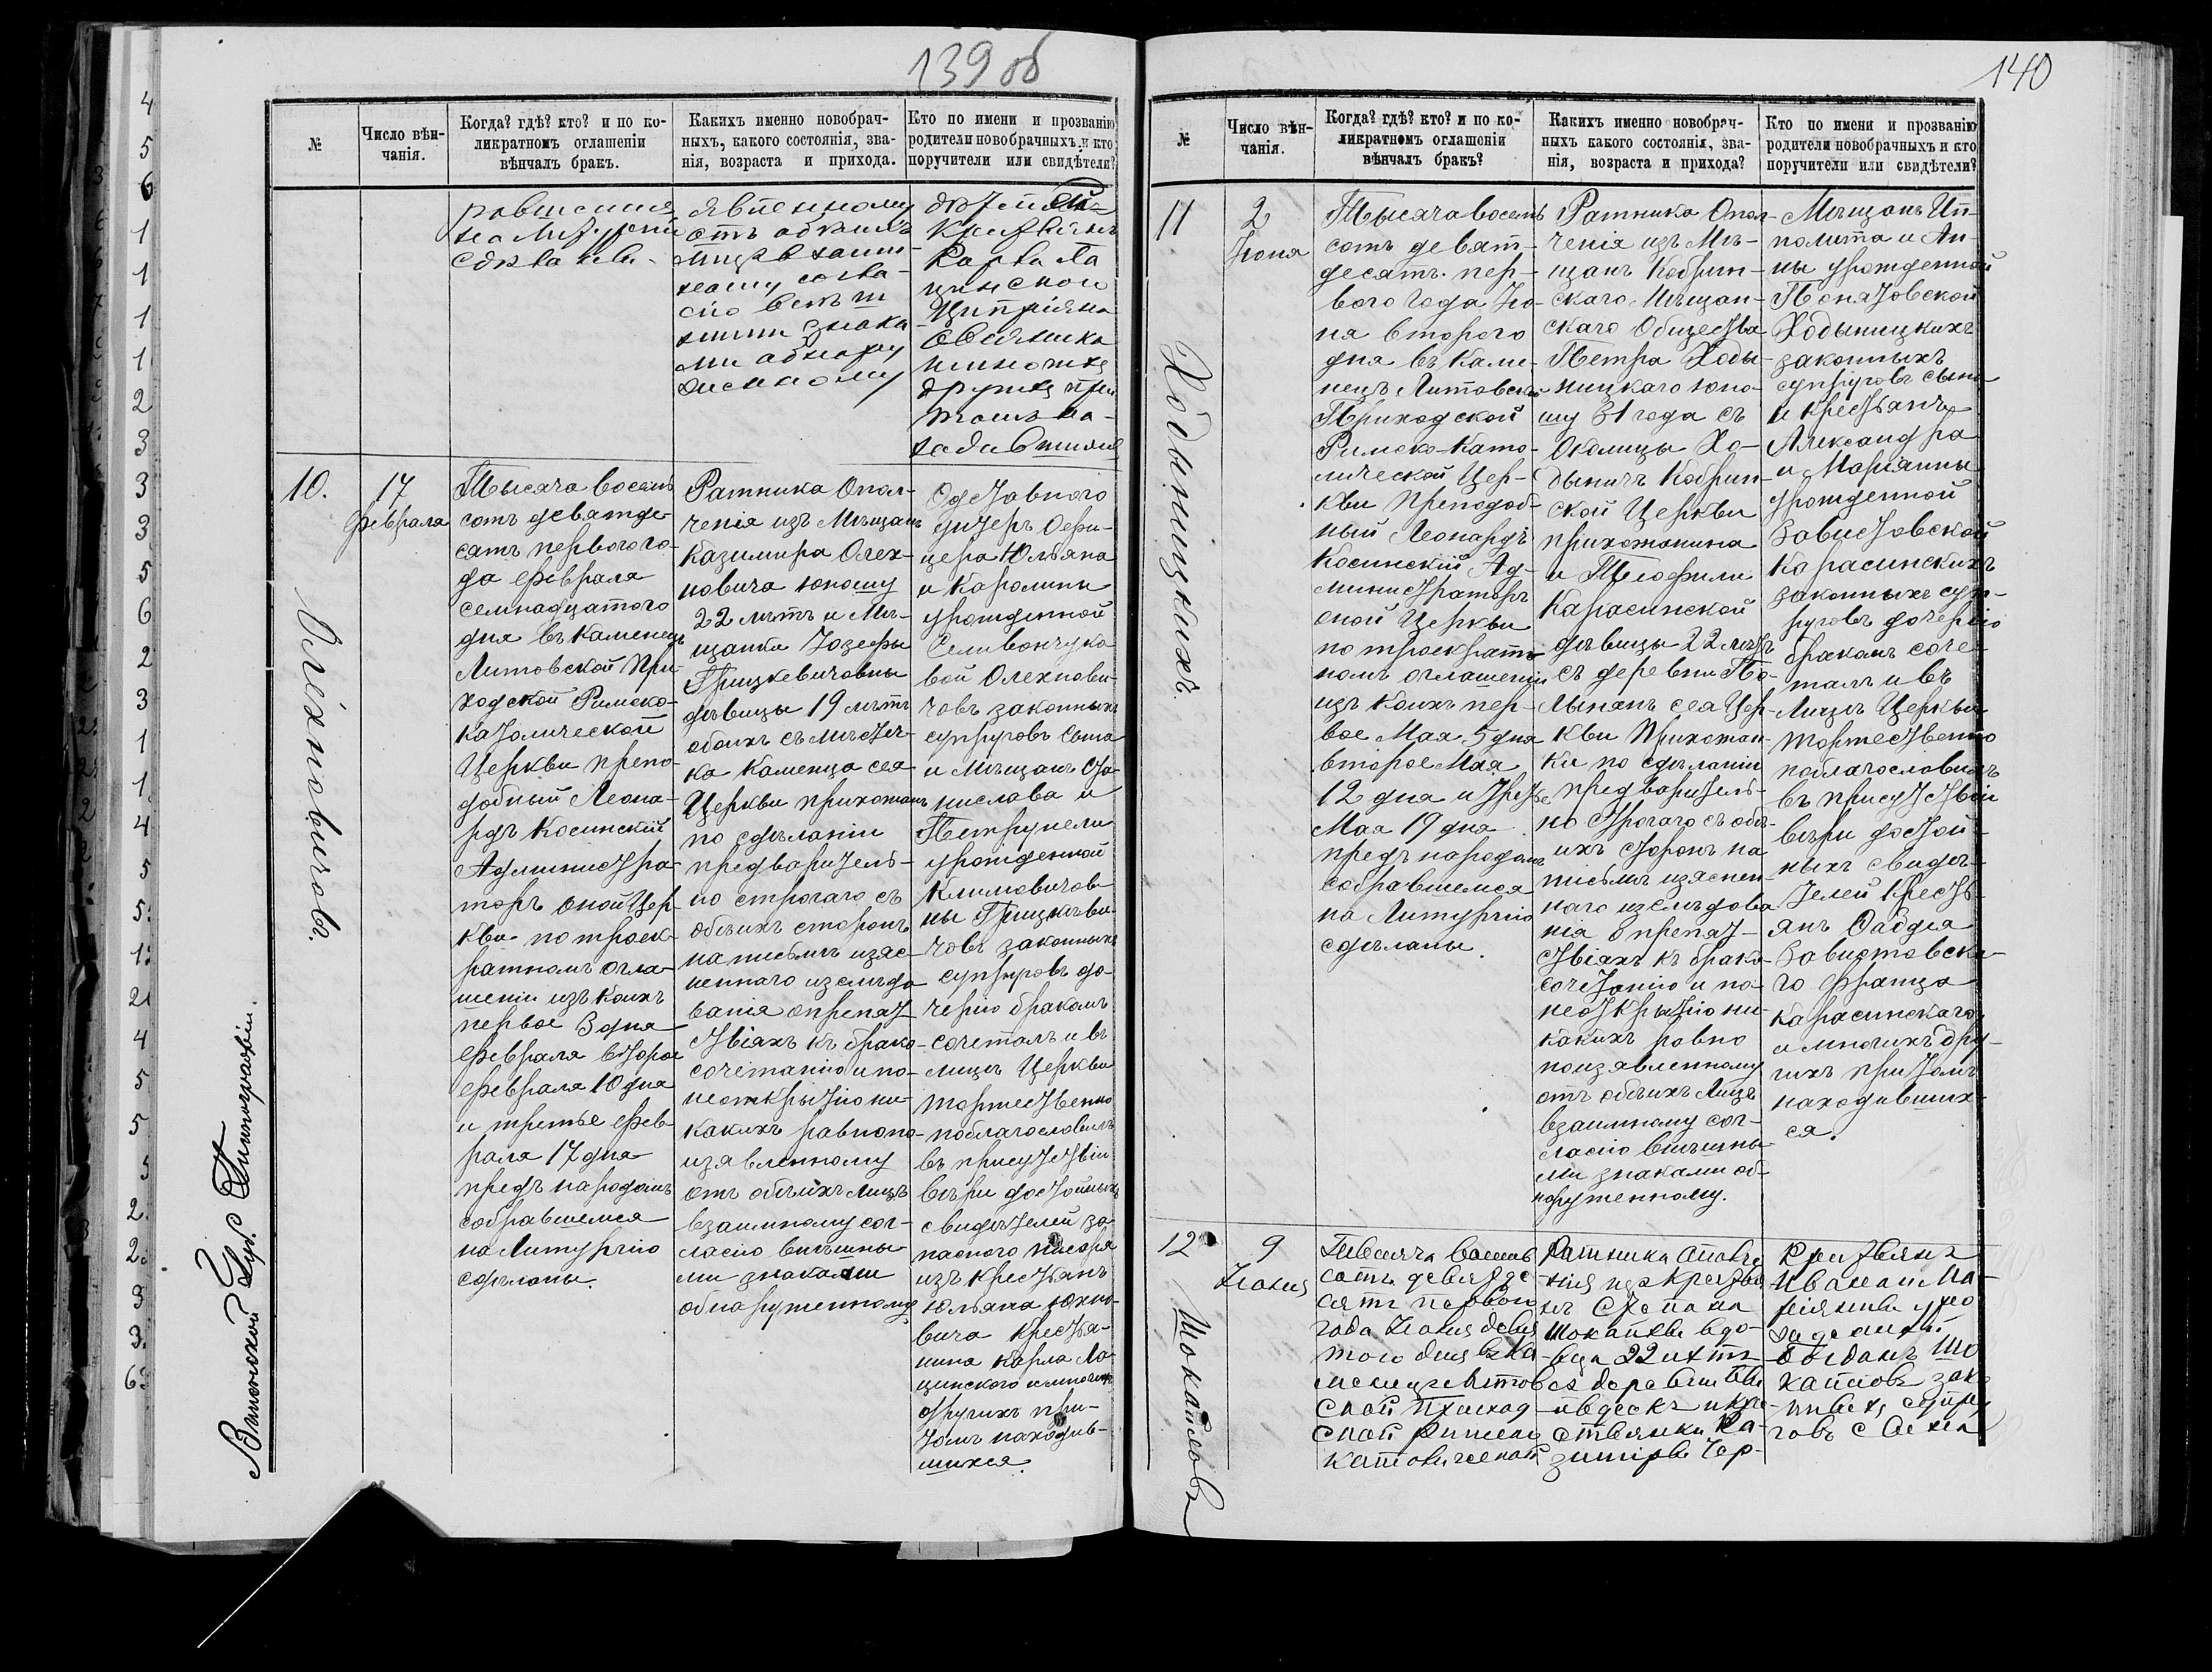 139 об
№
Число вѣн-
чанія.
Когда? гдѣ? кто? и по ко-
ликратномъ оглашеніи
вѣнчалъ бракъ.
Какихъ именно новобрач-
ныхъ, какого состоянія, зва-
нія, возраста и прихода.
Кто по имени и прозванію
родители новобрачныхъ и кто
поручители или свидѣтели?
на Литургіи
явленному
отъ
знака
ми
Крестьянъ
Карла Ла
цинскои
10.
17
февраля
Олехновичовъ.
Тысяча восемь
сотъ девятьде-
сятъ перваго го-
да февраля
семнадцатого
дня въ Каменецъ
Литовской При-
ходской Римско-
католической
Церкви препо-
добный Леона-
рдъ Косинскій
Администра-
торъ оной Цер-
кви по троек-
ратномъ огла-
шеніи изъ коихъ
первое 3 дня
февраля второе
февраля 10 дня
и третье фев-
раля 17 дня
предъ народомъ
собравшемся
на Литургію
сдѣланы.
Ратника Опол-
ченія изъ Мѣщанъ
Казимира Олех-
новича юношу
22 лѣтъ и Мѣ-
щанки Юзефы
Грицкевичовны
дѣвицы 19 лѣтъ
обоихъ съ мѣстеч-
ка Каменца сея
Церкви прихожанъ
по сдѣланіи
предваритель-
но строгаго съ
обѣихъ сторонъ
на письмѣ изяс-
неннаго изслѣдо
ванія о препят
ствіяхъ къ брако-
сочетанію и по-
неоткрытію ни-
какихъ равно по-
изявленному
отъ обѣихъ лицъ
взаимному сог-
ласію внѣшны-
ми знаками
обнаруженному
Отставного
унтеръ Офи-
цера Юльяна
и Каролины
урожденной
Селивончуко-
вой Олехнови-
човъ законныхъ
супруговъ сына
и Мѣщанъ Ста-
нислава и
Петрунели
урожденной
Климовичов-
ны Грицкѣви-
човъ законныхъ
супруговъ до-
черію бракомъ
сочеталъ и въ
лицѣ Церкви
торжественно
поблагословилъ
въ присутствіи
вѣри достойныхъ
свидѣтелей за-
паснаго писаря
изъ крестьянъ
Юльяна Юхно-
вича крестья-
нина Карла Ла-
цинскаго и многихъ
другихъ при-
томъ находив-
шихся.
Виленской Губ. Типографіи.
140
№
Число вѣн-
чанія.
Когда? гдѣ? кто? и по ко-
ликратномъ оглашеніи
вѣнчалъ бракъ?
Какихъ именно новобрач-
ныхъ какого состоянія, зва-
нія, возраста и прихода?
Кто по имени и прозванію
родители новобрачныхъ и кто
поручители или свидѣтели?
11
2
Іюня
Ходыницкихъ.
Тысяча восемь
сотъ девять-
десятъ пер-
вого года Ію-
ня второго
дня въ Каме-
нецъ Литовской
Приходской
Римско-Като-
лической Цер-
кви Преподоб-
ный Леонардъ
Косинскій Ад-
министраторъ
оной Церкви
по троекрат-
номъ оглашеніи
изъ коихъ пер-
вое Мая 5 дня
второе Мая
12 дня и третье
Мая 19 дня
предъ народомъ
собравшемся
на Литургію
сдѣланы.
Ратника Опол-
ченія изъ Мѣ-
щанъ Кобрин-
скаго Мѣщан-
скаго Общества
Петра Ходы-
ницкаго юно-
шу 31 года съ
Околицы Хо-
дыничъ Кобрин-
ской Церкви
прихожанина
и Теофили
Карасинской
дѣвицы 22 лѣтъ
съ деревни По-
лынянъ сея Цер-
кви Прихожан-
ки по сдѣланіи
предваритель-
но строгаго съ обѣ-
ихъ сторонъ на
письмѣ изяснен
наго изслѣдова
нія о препят-
ствіяхъ къ брако-
сочетанію и по-
неоткрытію ни-
какихъ равно
поизявленному
отъ обѣихъ лицъ
взаимному сог-
ласію внѣшны-
ми знаками об-
наруженному.
Мѣщанъ Ип-
полита и Ан-
ны урожденной
Понятовской
Ходыницкихъ
законныхъ
супруговъ сына
и крестьянъ
Александра
и Маріанны
урожденной
Завистовской
Карасинскихъ
законныхъ суп-
руговъ дочерію
бракомъ соче-
талъ и въ
Лицѣ Церкви
торжественно
поблагословилъ
въ присутствіи
вѣри достой-
ныхъ свидѣ-
телей кресть-
янъ Фаддея
Завистовска-
го Франца
Карасинскаго
и многихъ дру-
гихъ притомъ
находивших-
ся.
12
9
Іюня
Шокаловъ
Тысяча восемь
сотъ девятьде
сятъ первои
года Іюня девя
того дня въ Ка
менецъ Литов
скои Приход
скои Римско
католической
Ратника
изъ Крестья
нъ Степана
вдо-
вца 22 лѣтъ
съ деревни
и кре-
стьянки Ка-
зимиры Чер-
Крестьянъ
Ивана и Ма-
ріянны уро
зак-
супру
говъ сына